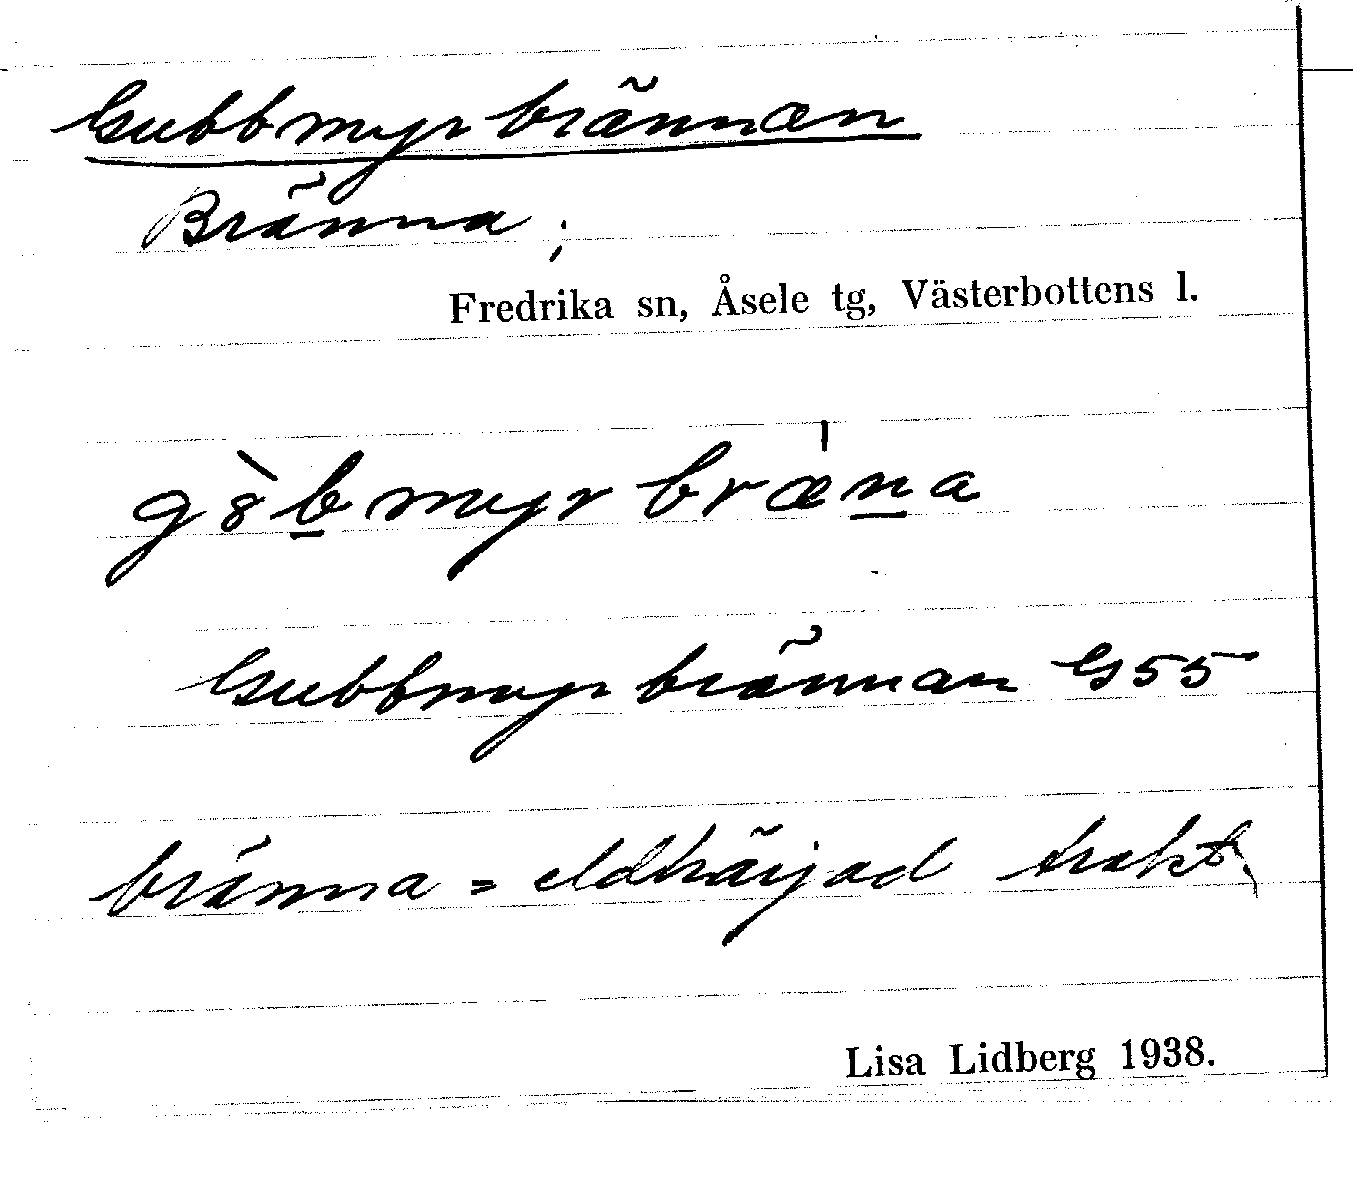 Gubbmyrbrännan
Bränna;
Fredrika sn, Åsele tg, Västerbottens l.
g8̀b̲myrbræ̍n̲a
Gubbmyrbrännan G55
bränna = eldhärjad trakt.
Lisa Lidberg 1938.